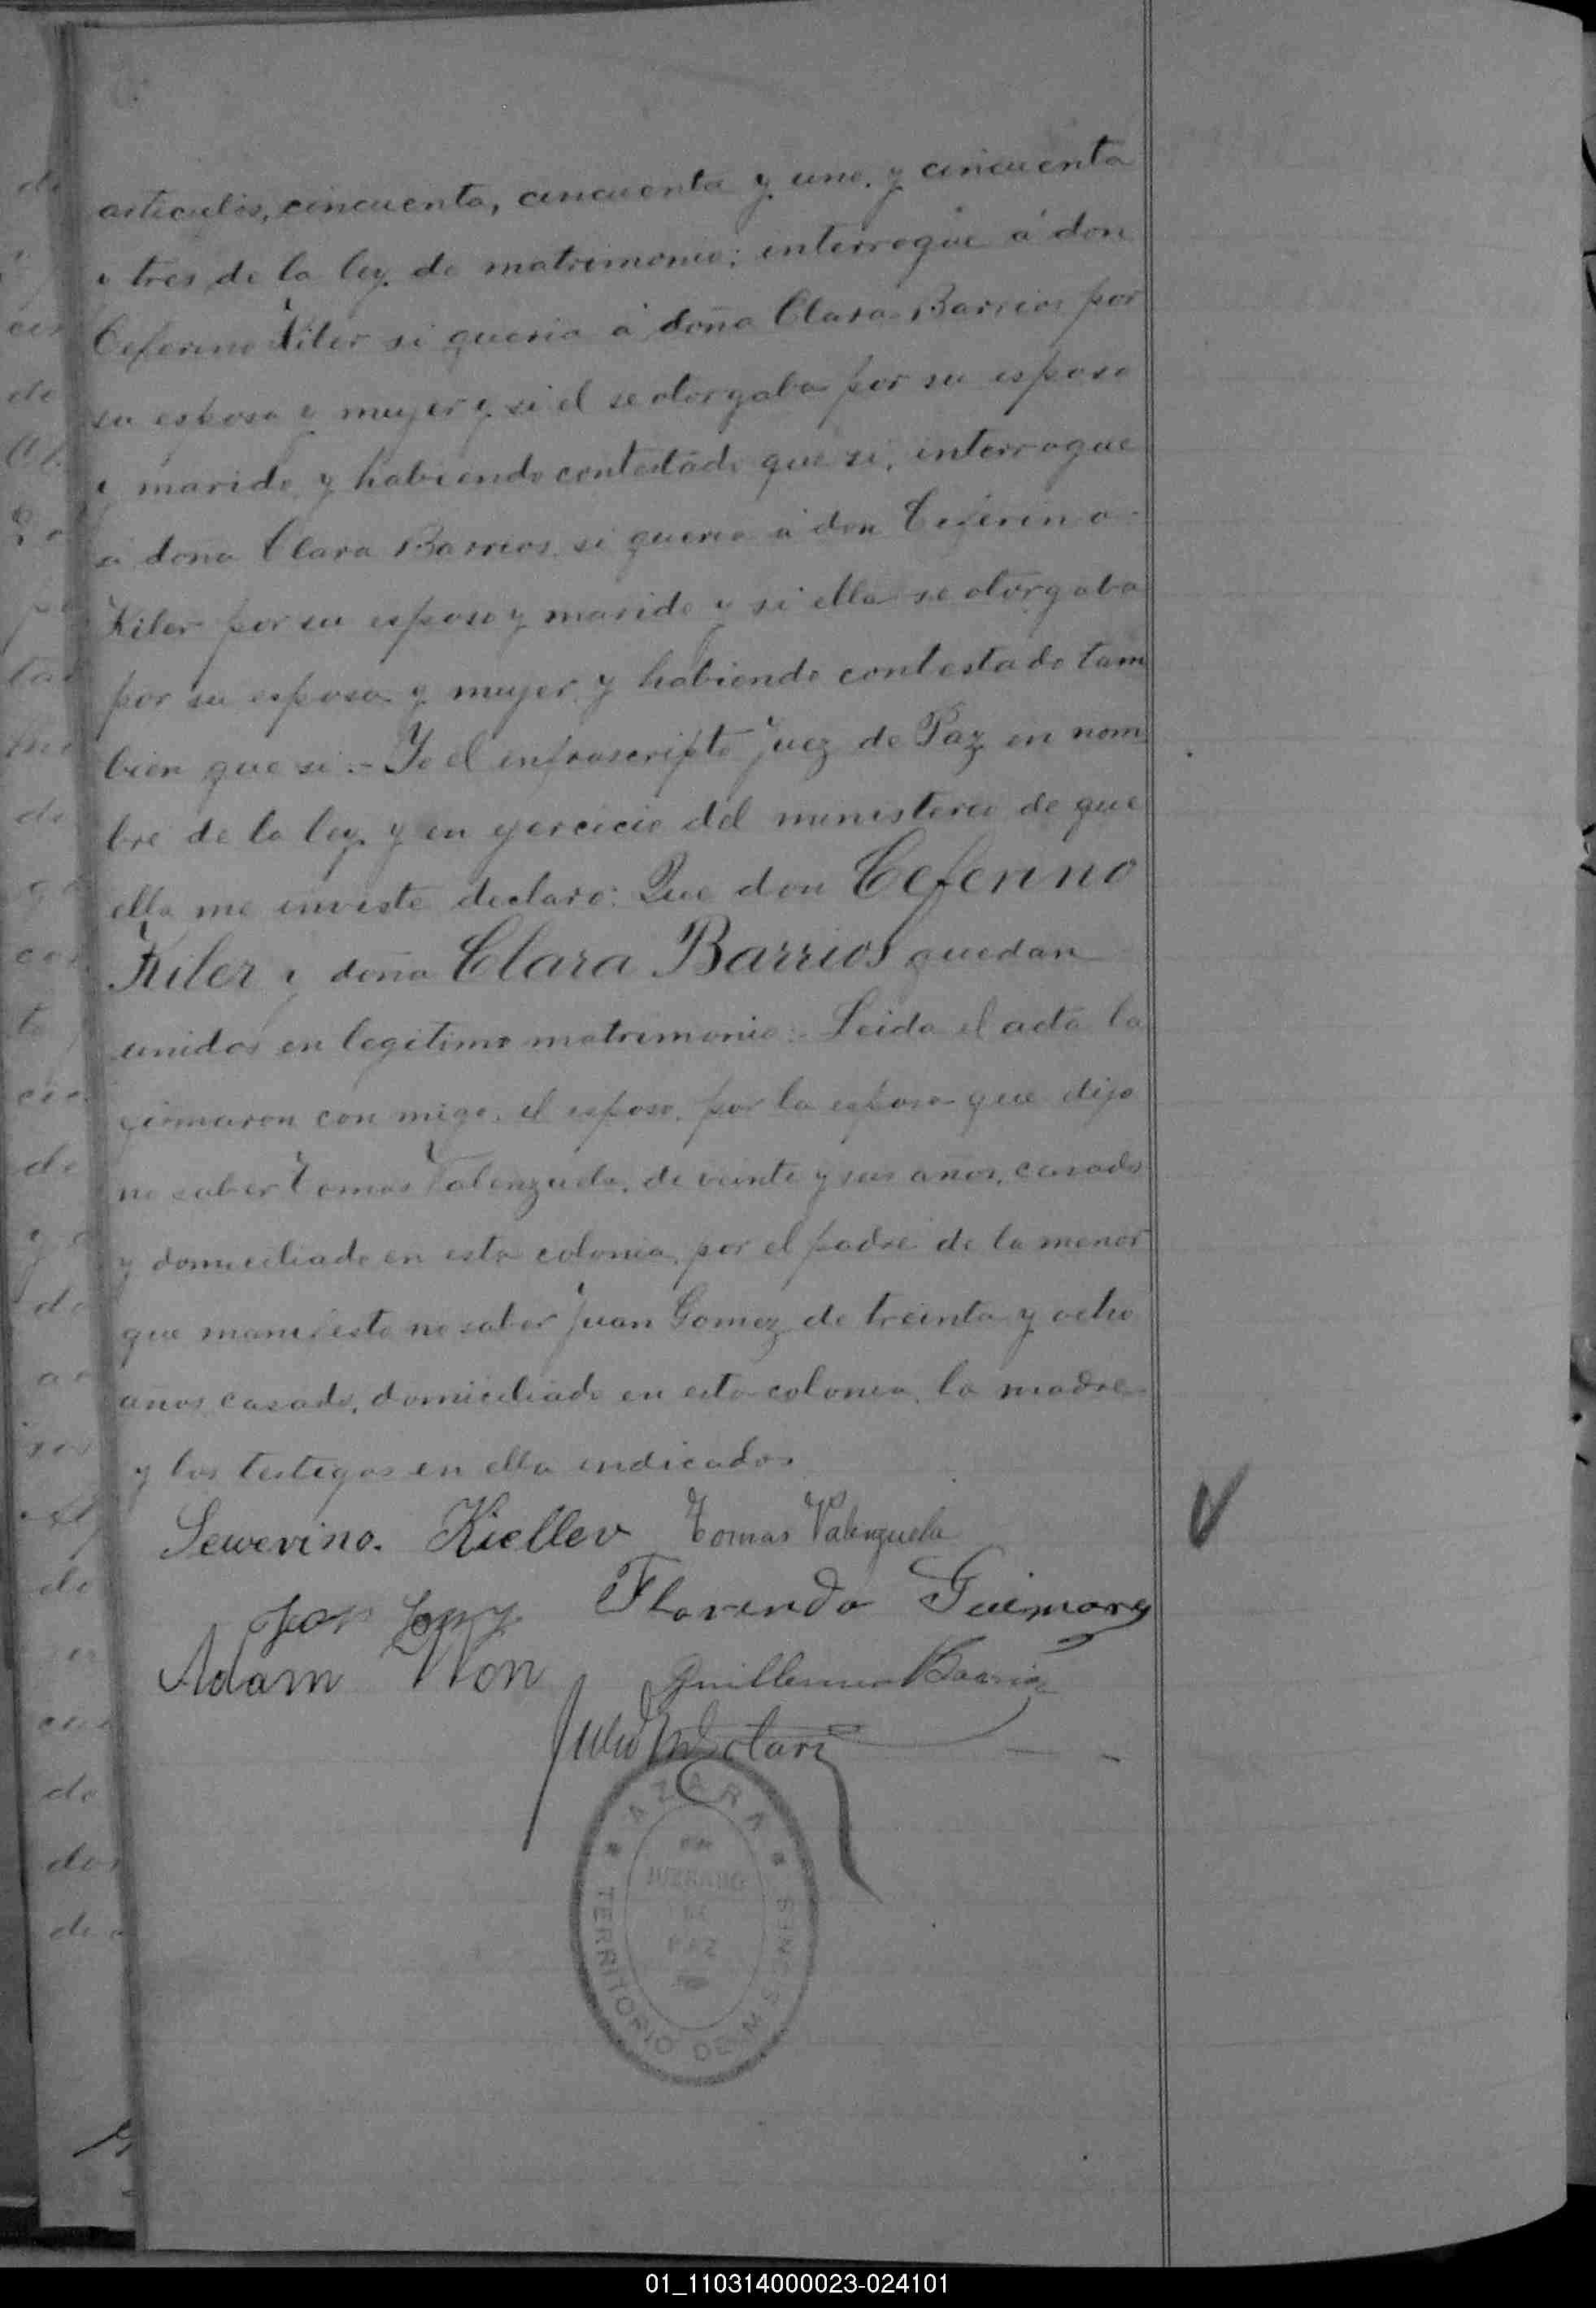 articulos, cincuenta, cincuenta y uno, y cincuenta
y tres de la ley de matrimonio; interrogue a' don
Ceferino Kiler si queria a' doña Clara Barrios por
su esposa y mujer y si el se otorgaba por su esposo
y marido y habiendo contestado que si; interrogue
a doña Clara Barrios si queria a' don Ceferino
Kiler por su esposo y marido y si ella se otorgaba
por su esposa y mujer y habiendo contestado tam
bien que si.- Yo el infrascripto Juez de Paz en nom
bre de la ley y en ejercicio del ministerio de que
ella me inviste declaro: Que don Ceferino
Kiler y doña Clara Barrios quedan
unidos en legitimo matrimonio:- Leida el acta la
firmaron con migo, el esposo, por la esposa que dijo
no saber Tomas Valenzuela, de veinte y seis años, casado
y domiciliado en esta colonia, por el padre de la menor
que manifesto no saber Juan Gomez de treinta y ocho
anos casado, domiciliado en esta colonia, la madre
y los testigos en ella indicados
Sewerino. Kiellev Tomas Valenzuela
Florinda Guimarey
Adam Guillermo Barrios
Julio
AZARA
JUZGADO
DE
PAZ
TERRITORIO DE MISIONES
01_110314000023-024101